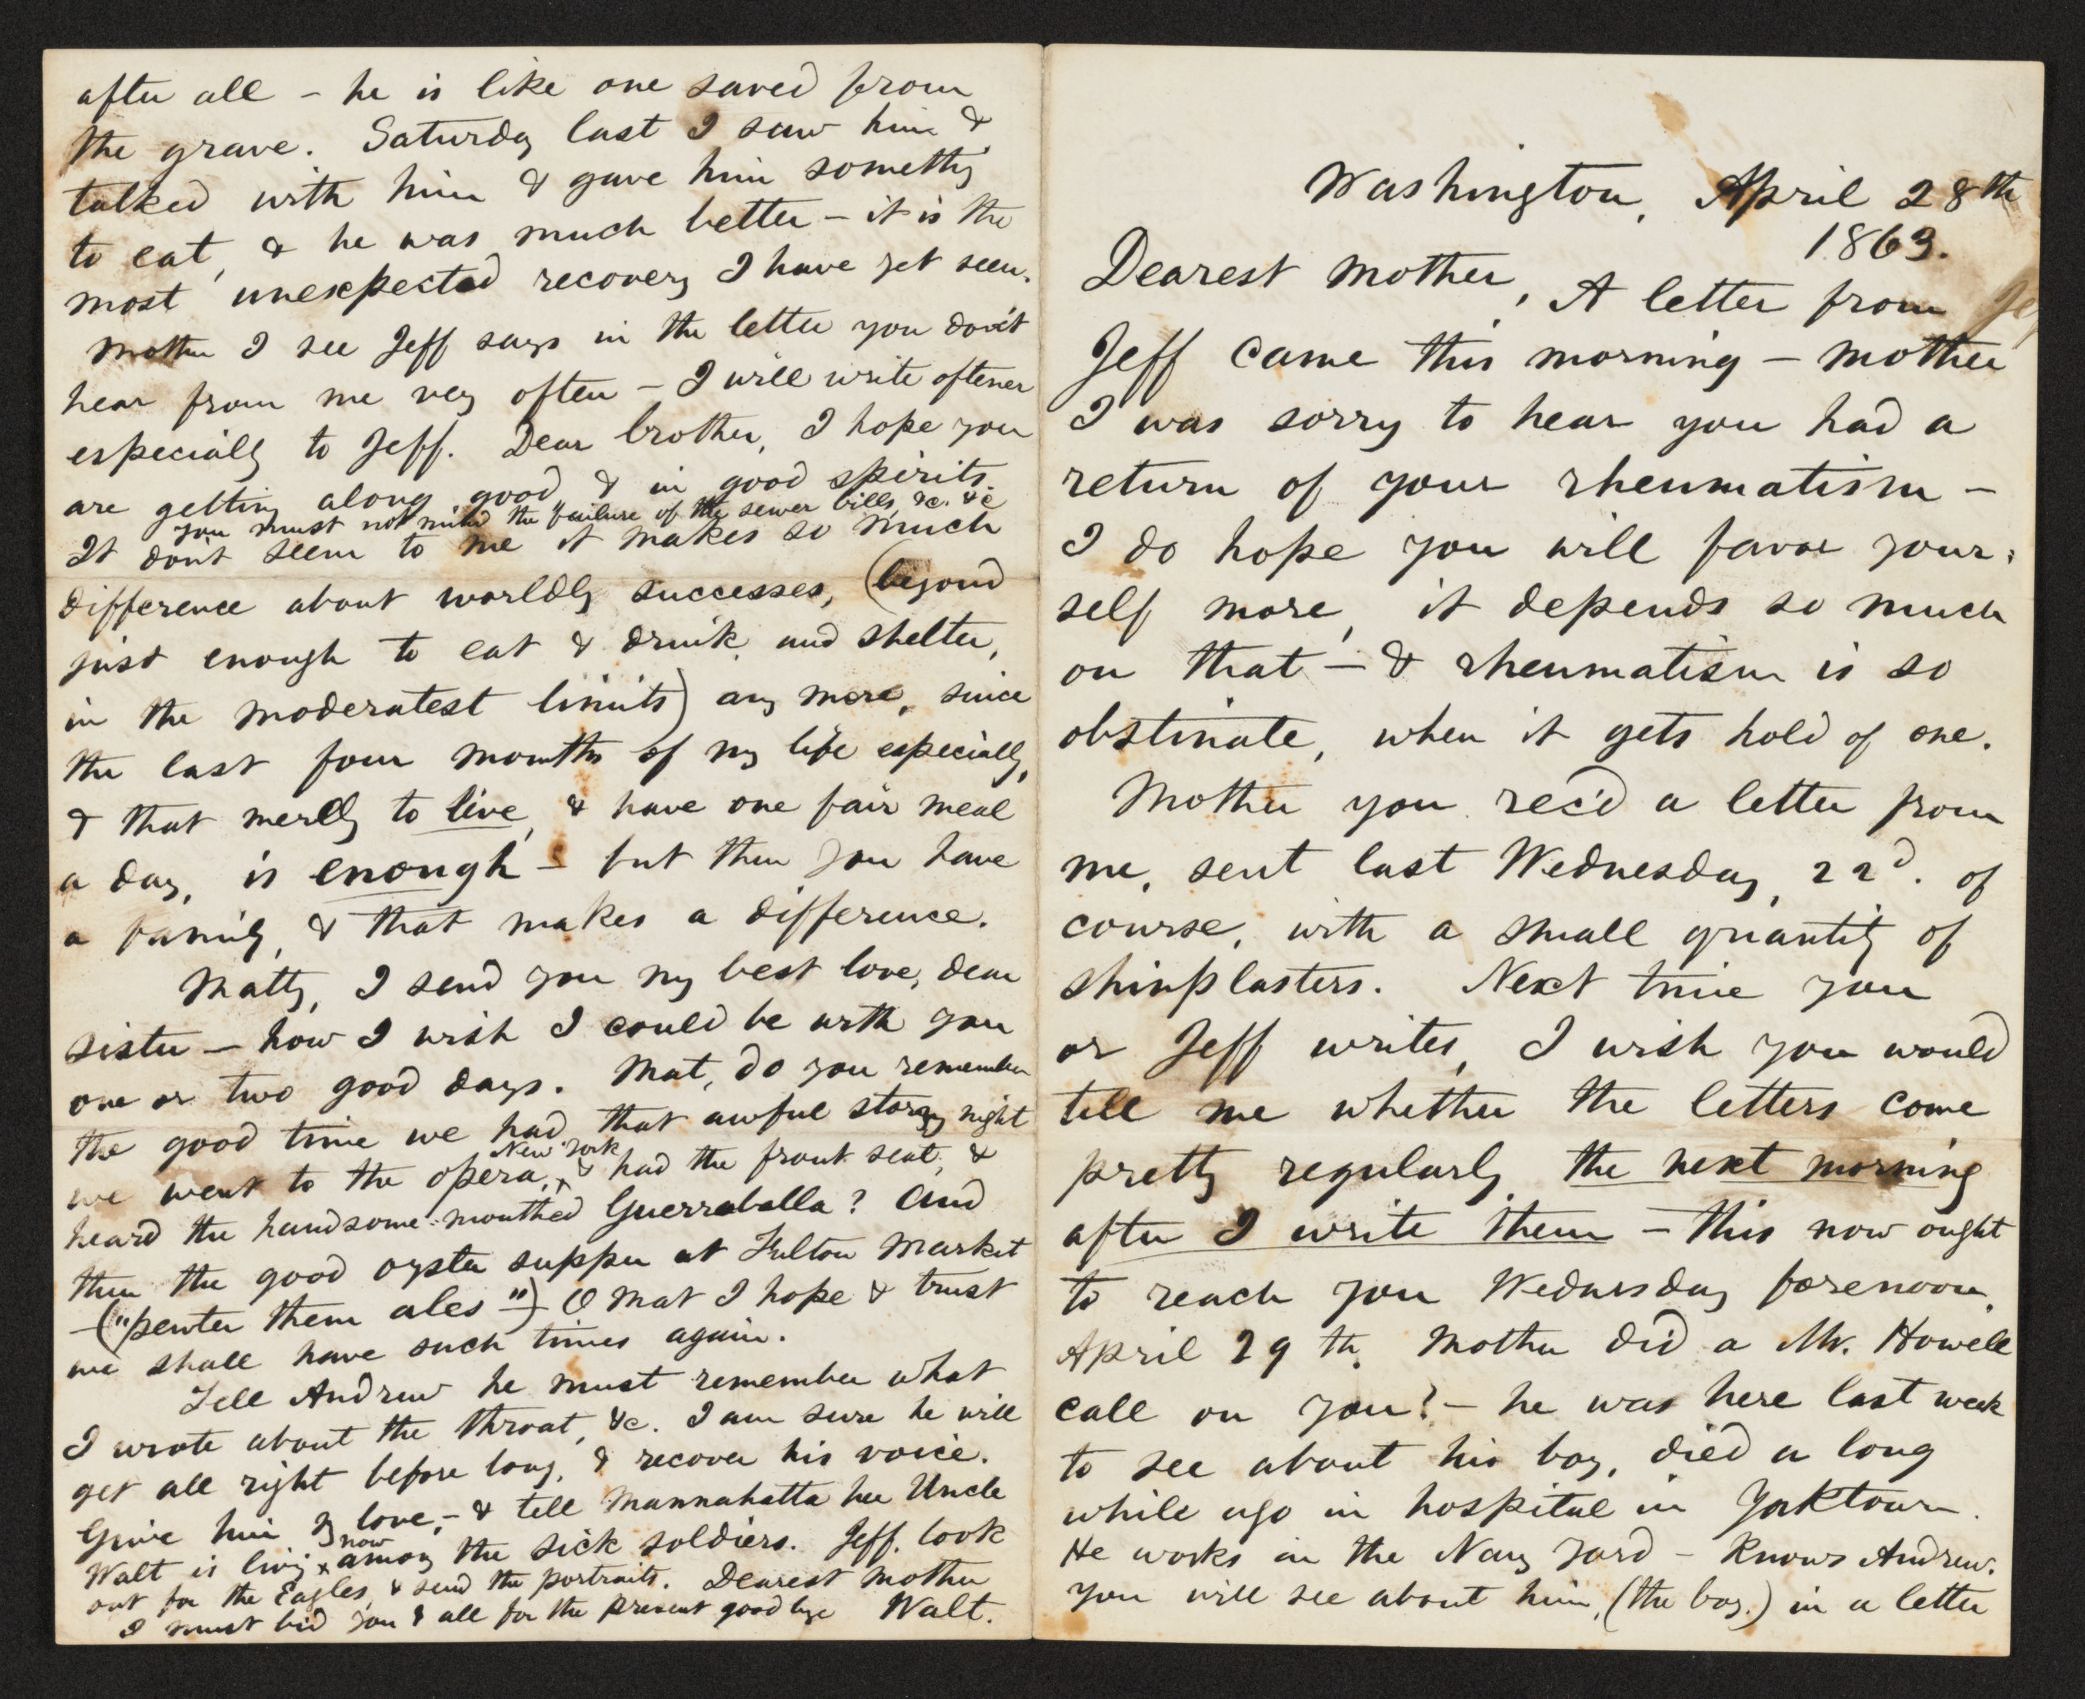 Washington, April 28th
1863.
Dearest Mother, A letter from
Jeff came this morning – Mother
I was sorry to hear you had a
return of your rheumatism –
I do hope you will favor your-
self more, it depends so much
on that – & rheumatism is so
obstinate, when it gets hold of one.
Mother you rec'd a letter from
me, sent last Wednesday, 22d. of
course, with a small quantity of
shinplasters. Next time you
or Jeff writes, I wish you would
tell me whether the letters come
pretty regularly, the next morning
after I write them – this now ought
to reach you Wednesday forenoon,
April 29th. Mother did a Mr. Howell
call on you? – he was here last week
to see about his boy, died a long
while ago in hospital in Yorktown.
He works in the Navy Yard – knows Andrew.
You will see about him, (the boy.) in a letter
after all – he is like one saved from
the grave. Saturday last I saw him &
talked with him & gave him something
to eat, & he was much better – it is the
most unexpected recovery I have yet seen.
Mother I see Jeff says in the letter you don't
hear from me very often – I will write oftener
especially to Jeff. Dear brother, I hope you
are getting along good & in good spirits.
you must not mind the failure of the sewer bills, &c. &c
It don't seem to me it makes so much
difference about worldly successes, (beyond
just enough to eat & drink, and shelter,
in the moderatest limits) any more, since
the last four months of my life especially,
& that merely to live, & have one fair meal
a day, is enough – but then you have
a family, & that makes a difference.
Matty, I send you my best love, dear
sister – how I wish I could be with you
one or two good days. Mat, do you remember
the good time we had that awful stormy night
we went to the opera, New York & had the front seat, &
heard the handsome-mouthed Guerrabella? and
then the good oyster supper at Fulton Market
– ("pewter them ales") – O Mat I hope & trust
we shall have such times again.
Tell Andrew he must remember what
I wrote about the throat, &c. I am sure he will
get all right before long, & recover his voice.
Give him my love, – & tell Mannahatta her Uncle
Walt is living now among the sick soldiers. Jeff. look
out for the Eagles, & send the portraits. Dearest Mother
I must bid you & all for the present good bye Walt.